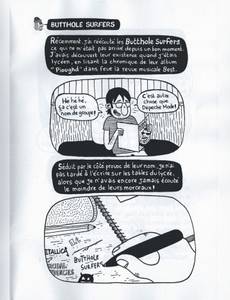 BUTTHOLE SURFERS
Récemment, j'ai réécouté les Butthole Surfers
ce qui ne m'était pas arrivé depuis un bon moment.
J'avais découvert leur existence quand j'étais
lycéen, en lisant la chronique de leur album
"Pioughd" dans feue la revue musicale Best.
Hé hé hé,
ça c'est un
nom de groupe!
C'est autre
chose que
Depeche Mode!
Séduit par le côté provoc de leur nom, je n'ai
pas tardé à l'écrire sur les tables du lycée,
alors que je n'avais encore jamais écouté
le moindre de leurs morceaux!
METALLICA
BUTTHOLE
SURFERS